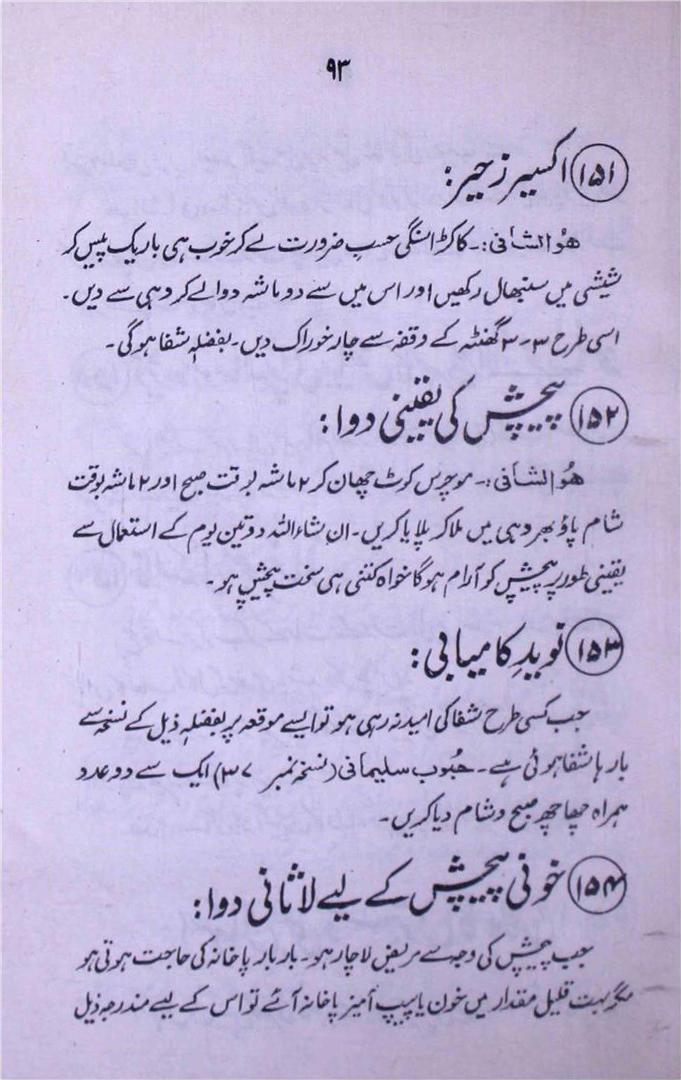 ۹۳
۱۵۱ اکسیر زحیر:
ھُوالشافی:۔ کاکڑاسنگی حسبِ ضرورت لے کر خوب ہی باریک پیس کر
شیشی میں سنبھال رکھیں اور اس میں سے دو ماشہ دوا لے کر دہی سے دیں۔
اسی طرح ۳-۳ گھنٹہ کے وقفہ سے چار خوراک دیں۔ بفضلہٖ شفا ہوگی۔
۱۵۲ پیچش کی یقینی دوا:
ھُوالشافی:۔ موچرس کوٹ چھان کر ۲ ماشہ بوقت صبح اور ۲ ماشہ بوقت
شام پاؤ بھر دہی میں ملا کر پلایا کریں۔ ان شاءاللہ دو تین یوم کے استعمال سے
یقینی طور پر پیچش کو آرام ہوگا خواہ کتنی ہی سخت پیچش ہو۔
۱۵۳ نویدِ کامیابی:
جب کسی طرح شفا کی امید نہ رہی ہو تو ایسے موقعہ پر بفضلہٖ ذیل کے نسخہ سے
بارہا شفا ہوئی ہے۔ حبُوب سلیمانی (نسخہ نمبر ۳۷) ایک سے دو عدد
ہمراہ چھاچھ صبح و شام دیا کریں۔
۱۵۴ خونی پیچش کے لیے لاثانی دوا:
جب پیچش کی وجہ سے مریض لاچار ہو۔ بار بار پاخانہ کی حاجت ہوتی ہو
مگر بہت قلیل مقدار میں خون یا پیپ آمیز پاخانہ آئے تو اس کے لیے مندرجہ ذیل